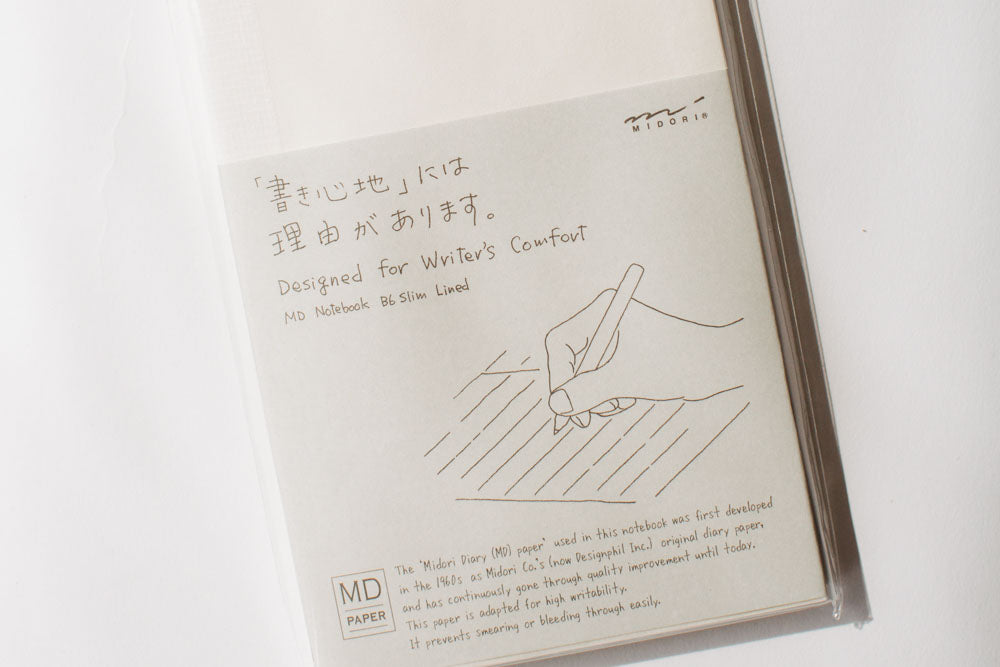 MIDORI®
「書き心地」には
理由があります。
Designed for Writer's Comfort
MD Notebook B6 Slim Lined
The "Midori Diary (MD) paper" used in this notebook was first developed
in the 1960s as Midori Co.'s (now Designphil Inc.) original diary paper,
and has continuously gone through quality improvement until today.
This paper is adapted for high writability.
It prevents smearing or bleeding through easily.
MD
PAPER